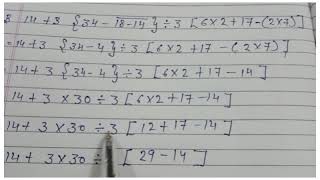 14 + 3 {34 - 18-14} ÷ 3 [ 6×2 + 17 - (2×7)]
= 14 + 3 {34 - 4} ÷ 3 [ 6×2 + 17 - (2×7)]
14 + 3 {34 - 4} ÷ 3 [ 6×2 + 17 - 14]
14 + 3 × 30 ÷ 3 [ 6×2 + 17 - 14]
14 + 3 × 30 ÷ 3 [ 12 + 17 - 14]
14 + 3 × 30 ÷ [ 29 - 14]